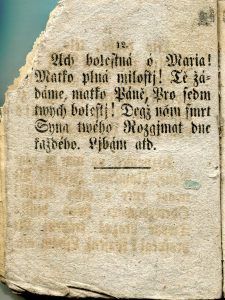 12.
Ach bolestná ó Maria!
Matko plná milostj! Tě žá-
dáme, matko Páně, Pro sedm
twých bolestj! Degž nám smrt
Syna twého Rozagjmat dne
každého. Ljbám atd.